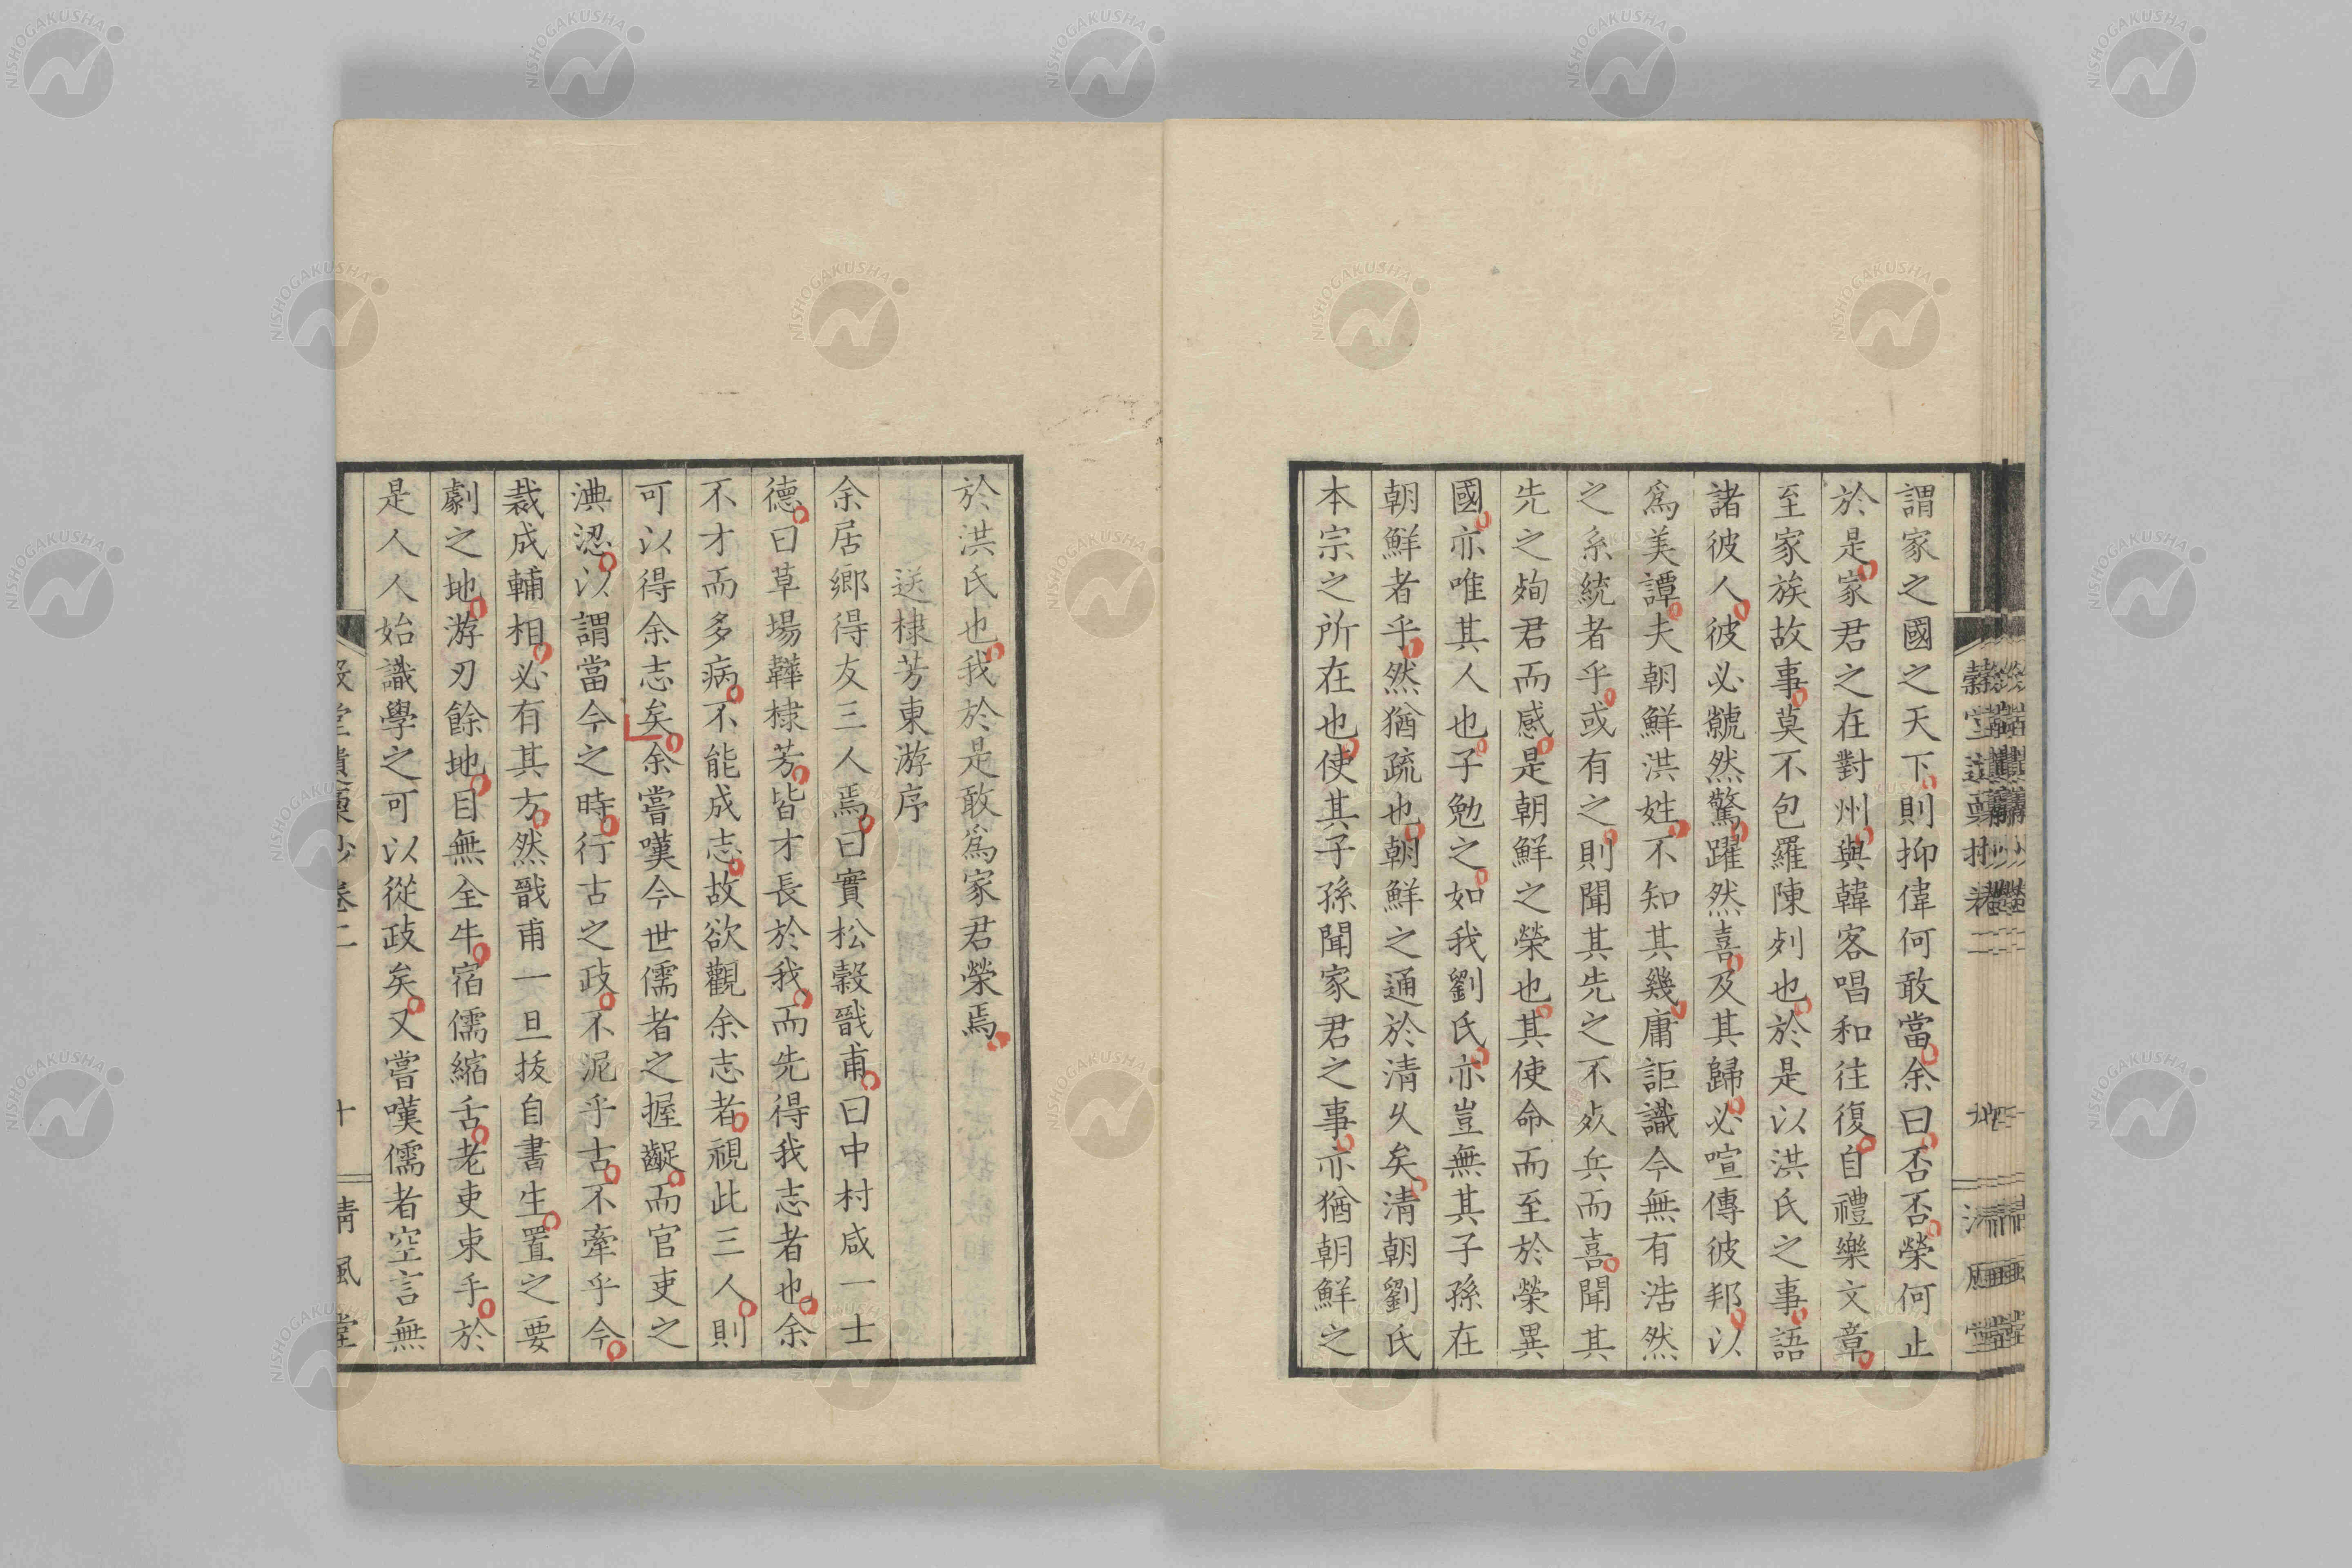 謂家之國之天下則抑偉何敢當余曰否否榮何止
於是家君之在對州與韓客唱和往復自禮樂文章
至家族故事莫不包羅陳列也於是以洪氏之事語
諸彼人彼必虩然驚躍然喜及其歸必喧傳彼邦以
爲美譚夫朝鮮洪姓不知其幾庸詎識今無有浩然
之系統者乎或有之則聞其先之不死兵而喜聞其
先之殉君而感是朝鮮之榮也其使命而至於榮異
國亦唯其人也子勉之如我劉氏亦豈無其子孫在
朝鮮者乎然猶疏也朝鮮之通於清久矣清朝劉氏
本宗之所在也使其子孫聞家君之事亦猶朝鮮之
於洪氏也我於是敢爲家君榮焉
送棣芳東游序
余居鄉得友三人焉曰實松穀戩甫曰中村咸一士
德曰草場韡棣芳皆才長於我而先得我志者也余
不才而多病不能成志故欲觀余志者視此三人則
可以得余志矣余嘗嘆今世儒者之握齱而官吏之
淟涊以謂當今之時行古之政不泥乎古不牽乎今
裁成輔相必有其方然戩甫一旦拔自書生置之要
劇之地游刃餘地目無全牛宿儒縮舌老吏束手於
是人人始識學之可以從政矣又嘗嘆儒者空言無
穀堂遺稾抄卷二
十
清風堂
NISHOGAKUSHA